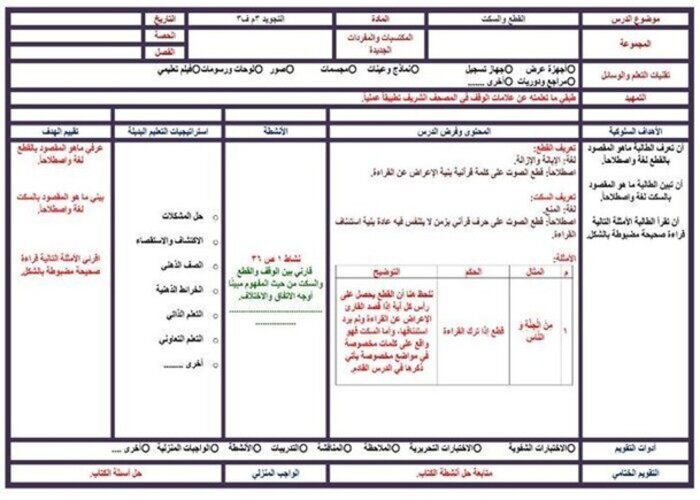 موضوع الدرس
القطع والسكت
المادة
التجويد ٣م ف٣
التاريخ
المجموعة
المكتسبات والمفردات
الجديدة
الحصة
الفصل
تقنيات التعلم والوسائل
أجهزة عرض جهاز تسجيل نماذج وعينات مجسمات صور لوحات ورسومات فيلم تعليمي
مراجع ودوريات أخرى .......
التمهيد
طبقي ما تعلمته عن علامات الوقف في المصحف الشريف تطبيقاً عملياً.
الأهداف السلوكية
المحتوى وفرض الدرس
الأنشطة
استراتيجيات التعليم البديلة
تقييم الهدف
أن تعرف الطالبة ما هو المقصود
بالقطع لغة واصطلاحاً.
أن تبين الطالبة ما هو المقصود
بالسكت لغة واصطلاحاً.
أن تقرأ الطالبة الأمثلة التالية
قراءة صحيحة مضبوطة بالشكل.
تعريف القطع:
لغة: الإبانة والإزالة.
اصطلاحاً: قطع الصوت على كلمة قرآنية بنية الإعراض عن القراءة.
تعريف السكت:
لغة: المنع.
اصطلاحاً: قطع الصوت على حرف قرآني بزمن لا يتنفس فيه عادة بنية استئناف
القراءة.
الأمثلة:
م
المثال
الحكم
التوضيح
١
مِنَ الْجِنَّةِ وَ
النَّاسِ
قطع إذا ترك القراءة
تلحظ هنا أن القطع يحصل على
رأس كل آية إذا قصد القارئ
الإعراض عن القراءة ولم يرد
استئنافها، وأما السكت فهو
واقع على كلمات مخصوصة
في مواضع مخصوصة يأتي
ذكرها في الدرس القادم.
نشاط ١ ص ٣٦
قارني بين الوقف والقطع
والسكت من حيث المفهوم مبينًا
أوجه الاتفاق والاختلاف.
حل المشكلات
الاكتشاف والاستقصاء
الصف الذهني
الخرائط الذهنية
التعلم الذاتي
التعلم التعاوني
أخرى .........
عرفي ماهو المقصود بالقطع
لغة واصطلاحاً.
بيني ما هو المقصود بالسكت
لغة واصطلاحاً.
اقرئي الأمثلة التالية قراءة
صحيحة مضبوطة بالشكل.
أدوات التقويم
الاختبارات الشفوية الاختبارات التحريرية الملاحظة المناقشة التدريبات الأنشطة الواجبات المنزلية أخرى ....
التقويم الختامي
متابعة حل أنشطة الكتاب.
الواجب المنزلي
حل أسئلة الكتاب.